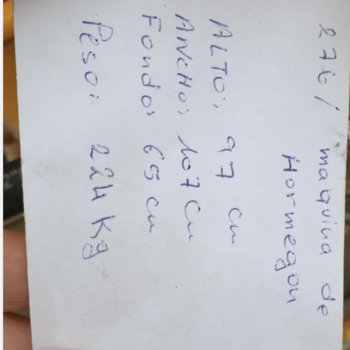 276 / maquina de
Hormegon
ALTO: 97 cm
ANCHO: 107 cm
Fondo: 65 cm
Peso: 224 Kg